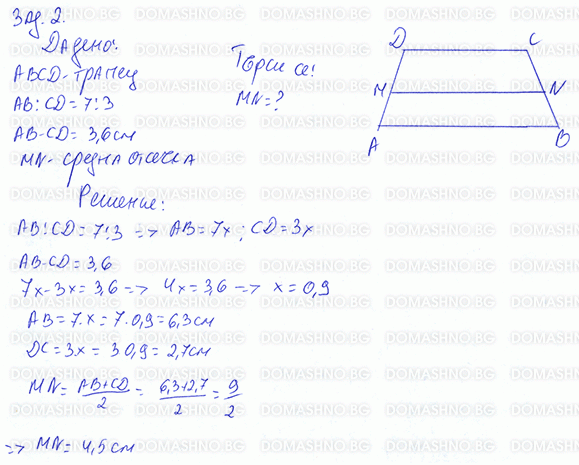 Зад. 2.
Дадено:
ABCD - трапец
AB:CD = 7:3
AB-CD = 3,6 см
MN - средна отсечка
Търси се:
MN = ?
D C
M N
A B
Решение:
AB:CD = 7:3 => AB = 7x ; CD = 3x
AB-CD = 3,6
7x-3x = 3,6 => 4x = 3,6 => x = 0,9
AB = 7.x = 7.0,9 = 6,3 см
DC = 3x = 3 0,9 = 2,7 см
MN = (AB+CD)/2 = (6,3+2,7)/2 = 9/2
=> MN = 4,5 см
DOMASHNO.BG